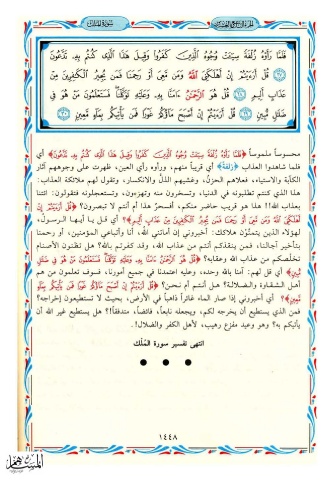 سورة الملك
فَلَمَّا رَأَوْهُ زُلْفَةً سِيٓـَٔتْ وُجُوهُ ٱلَّذِينَ كَفَرُوا۟ وَقِيلَ هَٰذَا ٱلَّذِى كُنتُم بِهِۦ تَدَّعُونَ
﴿٢٧﴾ قُلْ أَرَءَيْتُمْ إِنْ أَهْلَكَنِىَ ٱللَّهُ وَمَن مَّعِىَ أَوْ رَحِمَنَا فَمَن يُجِيرُ ٱلْكَٰفِرِينَ مِنْ
عَذَابٍ أَلِيمٍ ﴿٢٨﴾ قُلْ هُوَ ٱلرَّحْمَٰنُ ءَامَنَّا بِهِۦ وَعَلَيْهِ تَوَكَّلْنَا فَسَتَعْلَمُونَ مَنْ هُوَ فِى
ضَلَٰلٍ مُّبِينٍ ﴿٢٩﴾ قُلْ أَرَءَيْتُمْ إِنْ أَصْبَحَ مَآؤُكُمْ غَوْرًا فَمَن يَأْتِيكُم بِمَآءٍ مَّعِينٍۭ ﴿٣٠﴾
محسوساً ملموساً ﴿فَلَمَّا رَأَوْهُ زُلْفَةً سِيٓـَٔتْ وُجُوهُ ٱلَّذِينَ كَفَرُوا۟ وَقِيلَ هَٰذَا ٱلَّذِى كُنتُم بِهِۦ تَدَّعُونَ﴾ أي
فلما شاهدوا العذاب ﴿زُلْفَةً﴾ أي قريباً منهم، ورأوه رأي العين، ظهرت على وجوههم آثار
الكآبة والاستياء، فعلاهم الحزنُ، وغشيهم الذلُّ والانكسار، وتقول لهم ملائكة العذاب:
هذا الذي كنتم تطلبونه في الدنيا، وتسخرون منه وتهزءون، وتستعجلونه فتقولون: ائتنا
بعذاب الله!! هذا هو قريب حاضر منكم، أفسحرٌ هذا أم أنتم لا تبصرون؟ ﴿قُلْ أَرَءَيْتُمْ إِنْ
أَهْلَكَنِىَ ٱللَّهُ وَمَن مَّعِىَ أَوْ رَحِمَنَا فَمَن يُجِيرُ ٱلْكَٰفِرِينَ مِنْ عَذَابٍ أَلِيمٍ﴾ أي قل يا أيها الرسول،
لهؤلاء الذين يتمنَّوْن هلاكك: أخبروني إن أماتني الله، وأنا وأتباعي المؤمنين، أو رحمنا
بتأخير آجالنا، فمن ينقذكم أنتم من عذاب الله، وقد كفرتم بالله؟ هل تظنون الأصنام
تخلّصكم من عذاب الله وعقابه؟ ﴿قُلْ هُوَ ٱلرَّحْمَٰنُ ءَامَنَّا بِهِۦ وَعَلَيْهِ تَوَكَّلْنَا فَسَتَعْلَمُونَ مَنْ هُوَ فِى ضَلَٰلٍ
مُّبِينٍ﴾ أي قل لهم: آمنا بالله وحده، وعليه اعتمدنا في جميع أمورنا، فسوف تعلمون من هم
أهل الشقاوة والضلالة؟ هل أنتم أم نحن؟ ﴿قُلْ أَرَءَيْتُمْ إِنْ أَصْبَحَ مَآؤُكُمْ غَوْرًا فَمَن يَأْتِيكُم بِمَآءٍ
مَّعِينٍ﴾؟ أي أخبروني إذا صار الماء غائراً ذاهباً في الأرض، بحيث لا تستطيعون إخراجه؟
فمن الذي يستطيع أن يخرجه لكم، ويجعله نابعاً، فائضاً، متدفقاً!؟ هل يستطيع غير الله أن
يأتيكم به؟ وهو وعيد مفزع رهيب، لأهل الكفر والضلال!.
انتهى تفسير سورة المُلْك
١٤٤٨